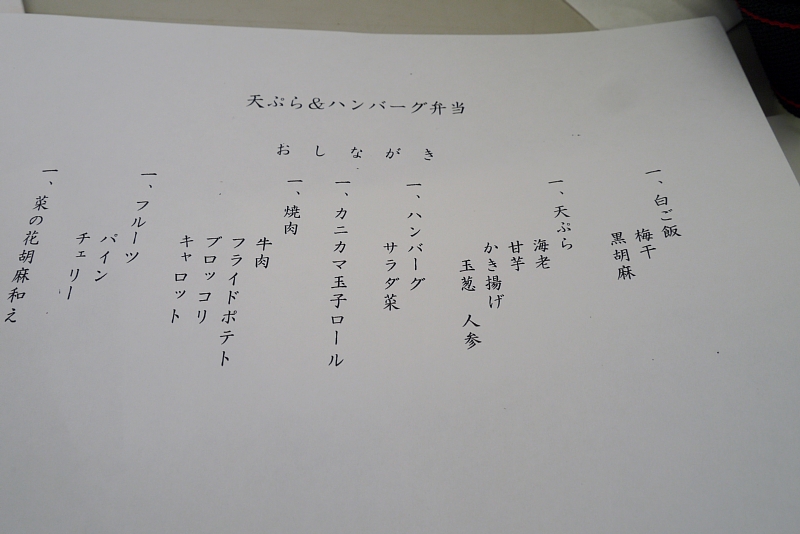 天ぷら＆ハンバーグ弁当
おしながき
一、白ご飯
梅干
黒胡麻
一、天ぷら
海老
甘芋
かき揚げ
玉葱 人参
一、ハンバーグ
サラダ菜
一、カニカマ玉子ロール
一、焼肉
牛肉
フライドポテト
ブロッコリ
キャロット
一、フルーツ
パイン
チェリー
一、菜の花胡麻和え